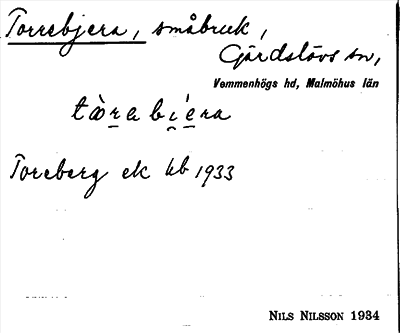 Torrebjera, småbruk,
Gärdslövs sn,
Vemmenhögs hd, Malmöhus län
tòra bi̯éra
Toreberg ek kb 1933
NILS NILSSON 1934